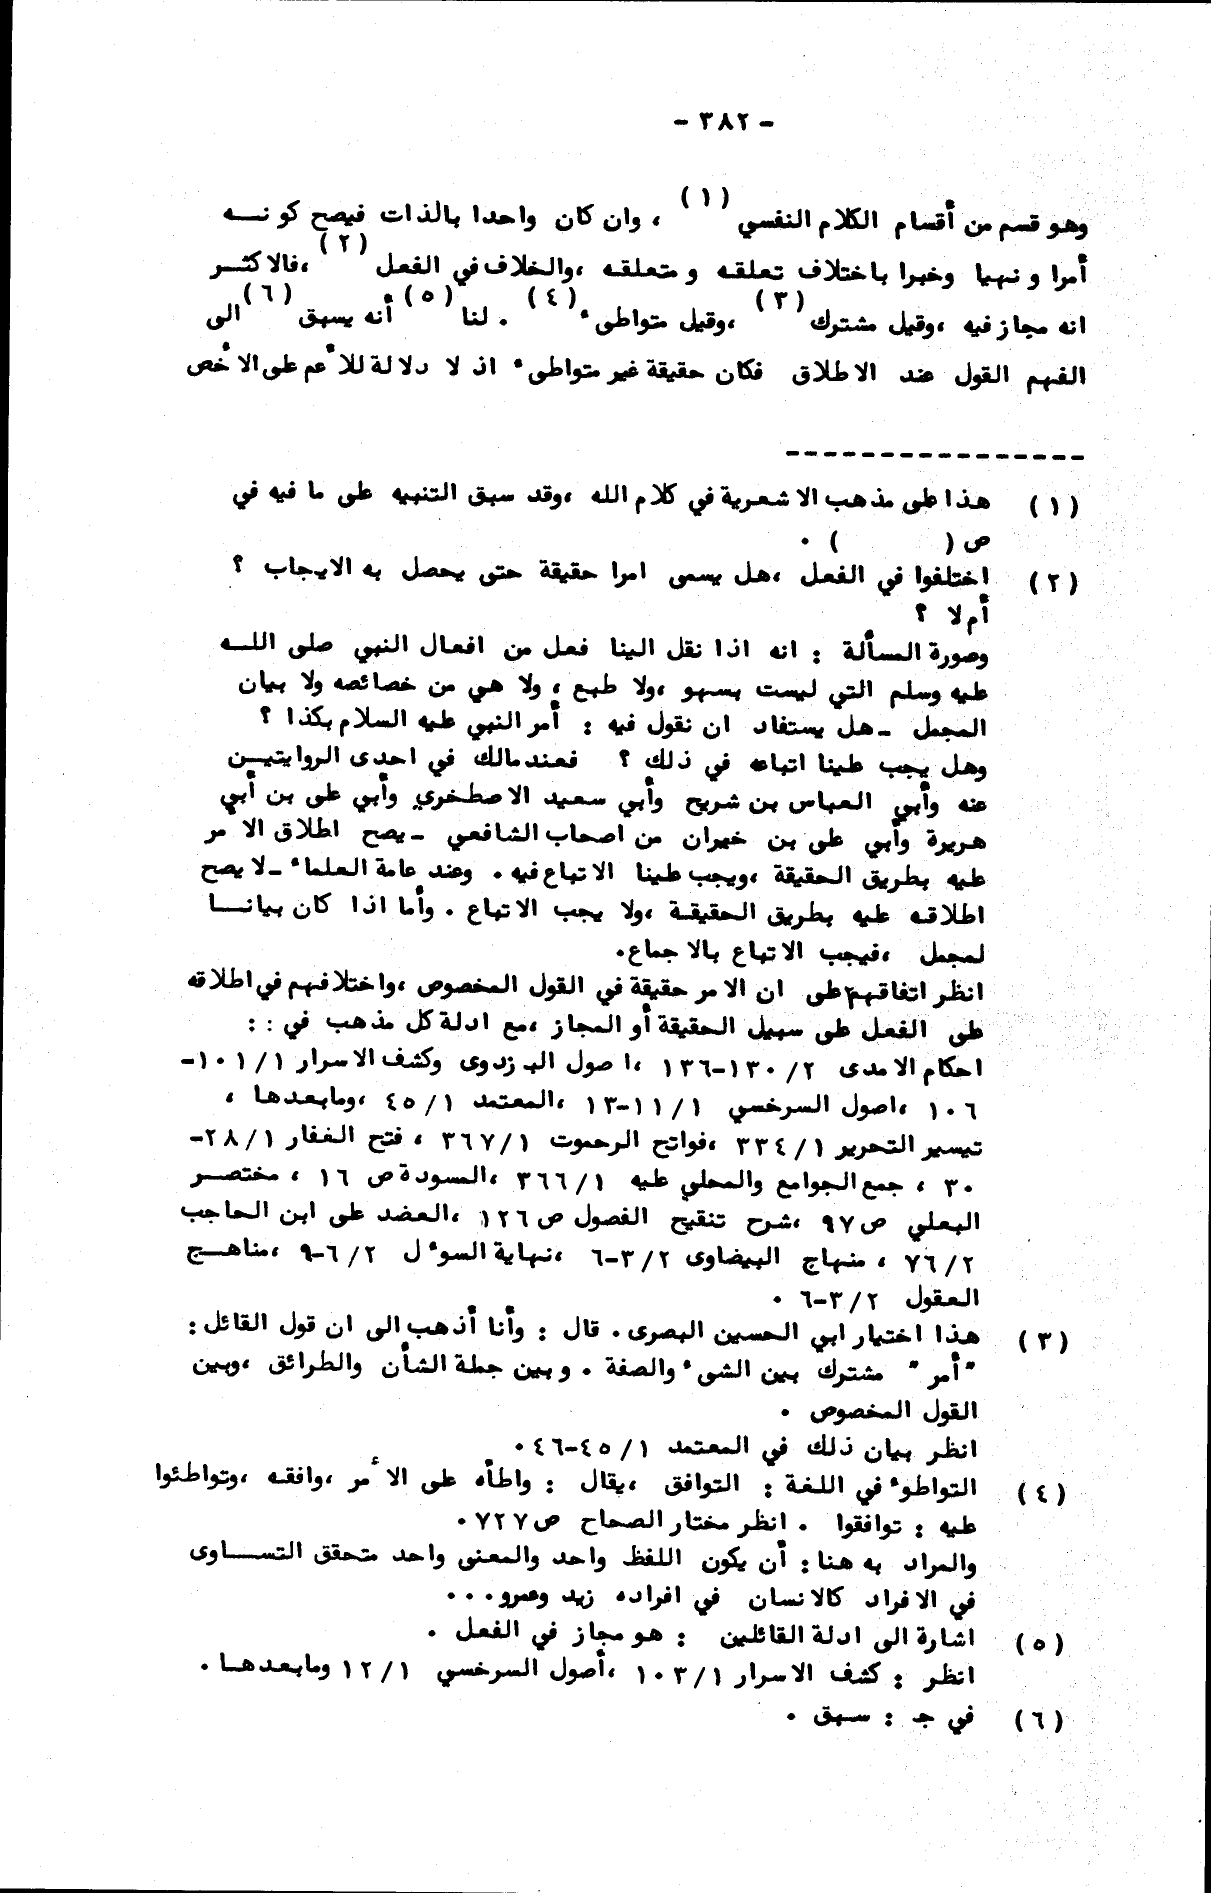 - ٣٨٢ -
وهو قسم من أقسام الكلام النفسي (١) ، وان كان واحدا بالذات فيصح كونــه
أمرا ونهيا وخبرا باختلاف تعلقه ومتعلقه ،والخلاف في الفعل (٢) ،فالاكثــر
انه مجاز فيه ،وقيل مشترك (٣) ،وقيل متواطىء (٤) . لنا (٥) أنه يسبق (٦) الى
الفهم القول عند الاطلاق فكان حقيقة غير متواطىء اذ لا دلالة للأعم على الأخص
(١) هذا على مذهب الاشعرية في كلام الله ،وقد سبق التنبيه على ما فيه في
ص ( ) .
(٢) اختلفوا في الفعل ،هل يسمى امرا حقيقة حتى يحصل به الايجاب ؟
أم لا ؟
وصورة المسألة : انه اذا نقل الينا فعل من افعال النبي صلى اللــه
عليه وسلم التي ليست بسهو ،ولا طبع ، ولا هي من خصائصه ولا بيان
المجمل -هل يستفاد ان نقول فيه : أمر النبي عليه السلام بكذا ؟
وهل يجب علينا اتباعه في ذلك ؟ فعند مالك في احدى الروايتيــن
عنه وأبي العباس بن شريح وأبي سعيد الاصطخري وأبي علي بن أبي
هريرة وأبي علي بن خيران من اصحاب الشافعي -يصح اطلاق الامر
عليه بطريق الحقيقة ،ويجب علينا الاتباع فيه . وعند عامة العلماء -لا يصح
اطلاقه عليه بطريق الحقيقة ،ولا يجب الاتباع . وأما اذا كان بيانــا
لمجمل ،فيجب الاتباع بالاجماع.
انظر اتفاقهم على ان الامر حقيقة في القول المخصوص ،واختلافهم في اطلاقه
على الفعل على سبيل الحقيقة أو المجاز ،مع ادلة كل مذهب في : :
احكام الامدى ٢/ ١٣٠-١٣٦ ،اصول البزدوى وكشف الاسرار ١/ ١٠١-
١٠٦ ،اصول السرخسي ١/ ١١-١٣ ،المعتمد ١/ ٤٥ ،ومابعدها ،
تيسير التحرير ١/ ٣٣٤ ،فواتح الرحموت ١/ ٣٦٧ ، فتح الغفار ١/ ٢٨-
٣٠ ، جمع الجوامع والمحلي عليه ١/ ٣٦٦ ،المسودة ص ١٦ ، مختصــر
البعلي ص ٩٧ ،شرح تنقيح الفصول ص ١٢٦ ،العضد على ابن الحاجب
٢/ ٧٦ ، منهاج البيضاوى ٢/ ٣-٦ ،نهاية السوءل ٢/ ٦-٩ ،مناهــج
العقول ٢/ ٣-٦ .
(٣) هذا اختيار ابي الحسين البصرى . قال : وأنا أذهب الى ان قول القائل :
"أمر" مشترك بين الشىء والصفة . وبين جملة الشأن والطرائق ،وبين
القول المخصوص .
انظر بيان ذلك في المعتمد ١/ ٤٥-٤٦ .
(٤) التواطوء في اللغة : التوافق ،يقال : واطأه على الأمر ،وافقه ،وتواطئوا
عليه : توافقوا . انظر مختار الصحاح ص ٧٢٧ .
والمراد به هنا : أن يكون اللفظ واحد والمعنى واحد متحقق التســاوى
في الافراد كالانسان في افراده زيد وعمرو . . .
(٥) اشارة الى ادلة القائلين : هو مجاز في الفعل .
انظر : كشف الاسرار ١/ ١٠٣ ،أصول السرخسي ١/ ١٢ ومابعدهــا .
(٦) في جـ : سبق .